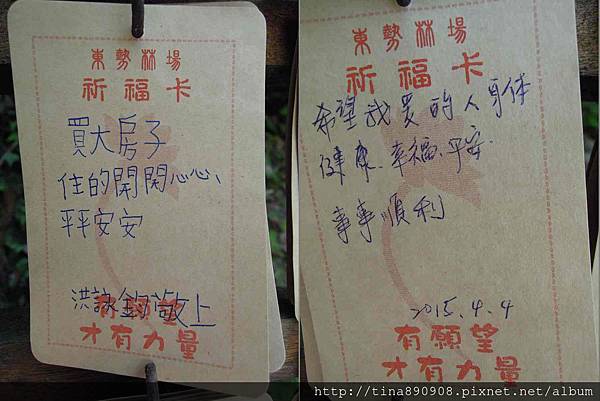 東勢林場
祈福卡
買大房子
住的開開心心、
平平安安
洪詠鈞敬上
有願望
才有力量
東勢林場
祈福卡
希望我愛的人身体
健康、幸福、平安.
事事順利
2015.4.4
有願望
才有力量
http://tina890908.pixnet.net/album